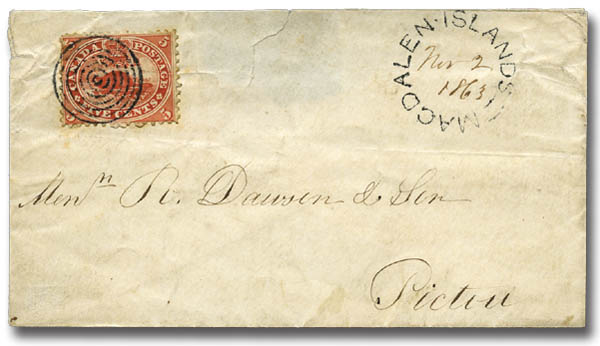 CANADA POSTAGE
5 5
FIVE CENTS
5 5
MAGDALEN·ISLANDS
Nov 2
1863
Mess rs R. Dawson & Son
Pictou